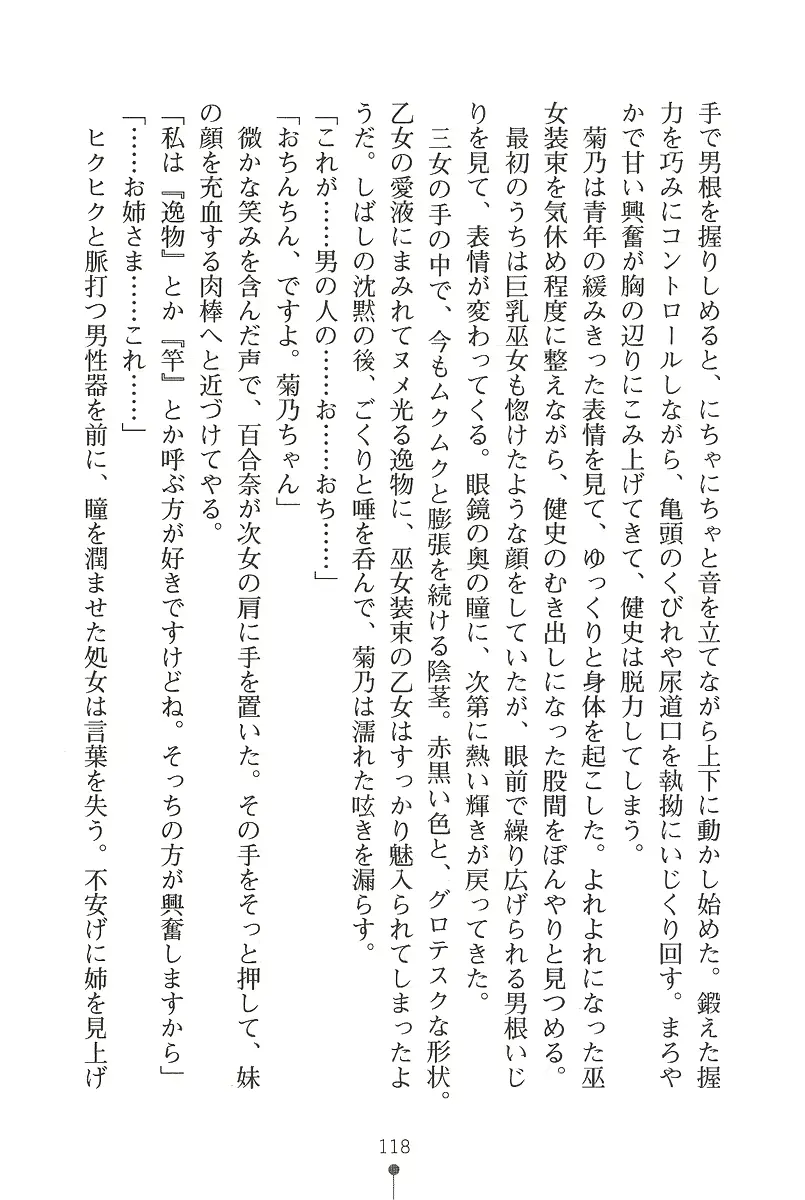 手で男根を握りしめると、にちゃにちゃと音を立てながら上下に動かし始めた。鍛えた握
力を巧みにコントロールしながら、亀頭のくびれや尿道口を執拗にいじくり回す。まろや
かで甘い興奮が胸の辺りにこみ上げてきて、健史は脱力してしまう。
菊乃は青年の緩みきった表情を見て、ゆっくりと身体を起こした。よれよれになった巫
女装束を気休め程度に整えながら、健史のむき出しになった股間をぼんやりと見つめる。
最初のうちは巨乳巫女も惚けたような顔をしていたが、眼前で繰り広げられる男根いじ
りを見て、表情が変わってくる。眼鏡の奥の瞳に、次第に熱い輝きが戻ってきた。
三女の手の中で、今もムクムクと膨張を続ける陰茎。赤黒い色と、グロテスクな形状。
乙女の愛液にまみれてヌメ光る逸物に、巫女装束の乙女はすっかり魅入られてしまったよ
うだ。しばしの沈黙の後、ごくりと唾を呑んで、菊乃は濡れた呟きを漏らす。
「これが……男の人の……お……おち……」
「おちんちん、ですよ。菊乃ちゃん」
微かな笑みを含んだ声で、百合奈が次女の肩に手を置いた。その手をそっと押して、妹
の顔を充血する肉棒へと近づけてやる。
「私は『逸物』とか『竿』とか呼ぶ方が好きですけどね。そっちの方が興奮しますから」
「……お姉さま……これ……」
ヒクヒクと脈打つ男性器を前に、瞳を潤ませた処女は言葉を失う。不安げに姉を見上げ
118